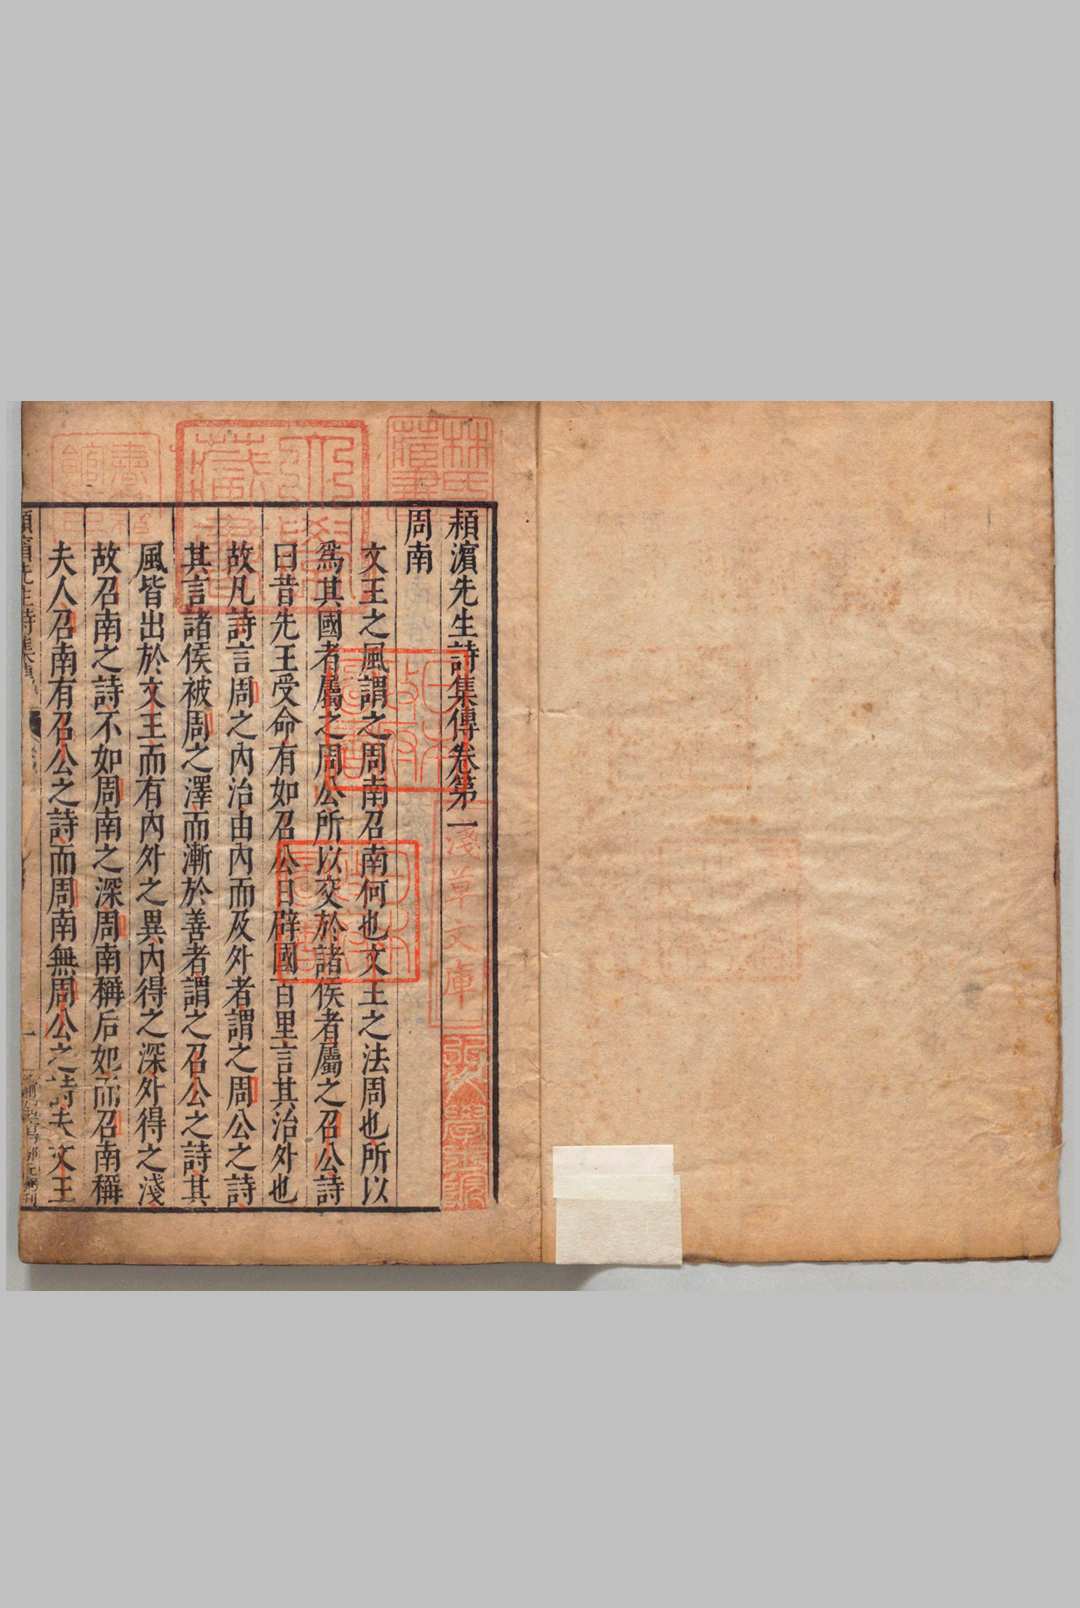 潁濵先生詩集傳卷第一
周南
文王之風謂之周南召南何也文王之法周也所以
爲其國者屬之周公所以交於諸侯者屬之召公詩
曰昔先王受命有如召公日辟國百里言其治外也
故凡詩言周之內治由內而及外者謂之周公之詩
其言諸侯被周之澤而漸於善者謂之召公之詩其
風皆出於文王而有內外之異內得之深外得之淺
故召南之詩不如周南之深周南稱后妃而召南稱
夫人召南有召公之詩而周南無周公之詩夫文王
林氏藏書
淺草文庫
日本政府圖書